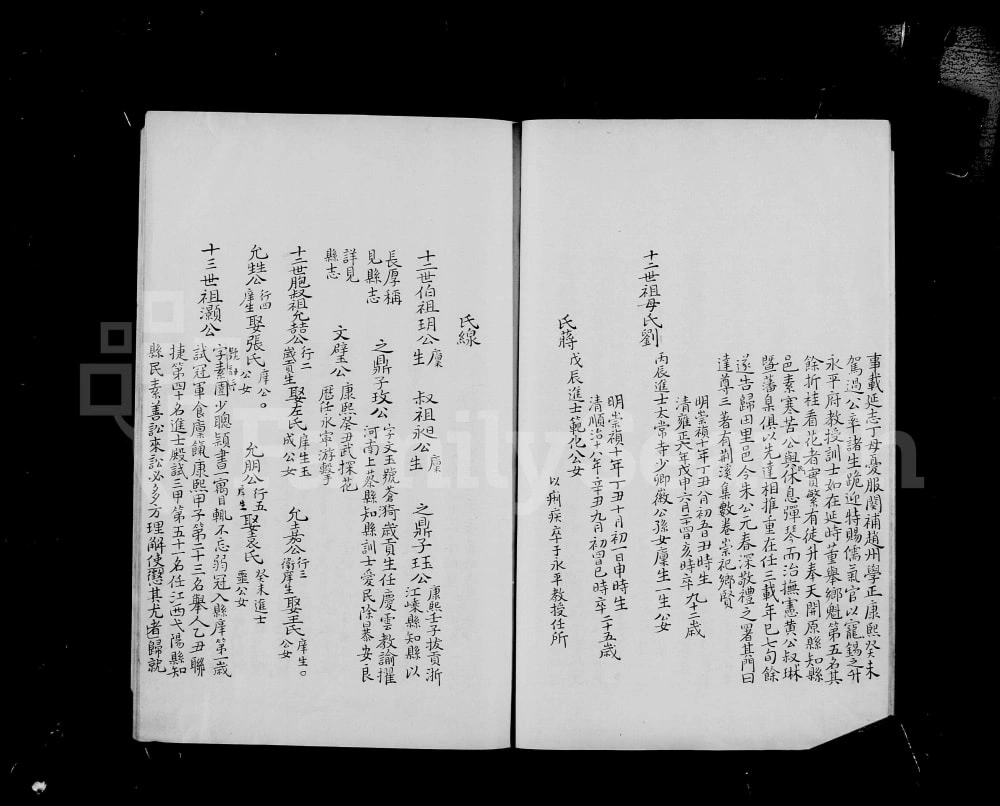 事載延志丁母憂服闋補趙州學正康熙癸未
駕過公率諸生跪迎特賜儒氣官以寵錫之升
永平府教授訓士如在延時董舉鄉魁第五名其
餘折桂看花者實繁有徒升奉天開原縣知縣
邑素寒苦公與民休息彈琴而治撫憲黃公叔琳
暨藩臬俱以先達相推重在任三載年已七旬餘
遂告歸田里邑令朱公元春深敬禮之署其門曰
達尊三著有荆溪集數卷崇祀鄉賢
十二世祖母氏劉
丙辰進士太常寺少卿徽公孫女廩生一生公女
明崇禎十年丁丑八月初五日丑時生
清雍正六年戊申六月二十亥時卒九十二歲
氏蔣
戊辰進士範化公女
明崇禎十年丁丑十月初一日申時生
清順治十八年辛丑九月初四日巳時卒二十五歲
以痢疾卒于永平教授任所
氏線
十二世伯祖玥公廩生
叔祖昶公廩生
之鼎子玨公康熙壬子拔貢浙江嵊縣知縣以
長厚稱見縣志
之鼎子玫公字文玉號蒼漪歲貢生任慶雲教諭擢河南上蔡縣知縣訓士愛民除暴安良
詳見縣志
文璧公康熙癸丑武探花歷任永寧游擊
十二世胞叔祖允喆公行二歲貢生娶左氏庠生玉成公女
允嘉公行三衛庠生娶王氏庠生。公女
允甡公行四庠生娶張氏庠公。公女
允朋公行五庠生娶袁氏癸未進士噩公女
十三世祖灝公
字素園少聰穎書一寓目輒不忘弱冠入縣庠第一歲
試冠軍食廩餼康熙甲子第二十三名舉人乙丑聯
捷第四十名進士殿試三甲第五十一名任江西弋陽縣知
縣民素善訟來訟必多方理解使愿其尤者歸就